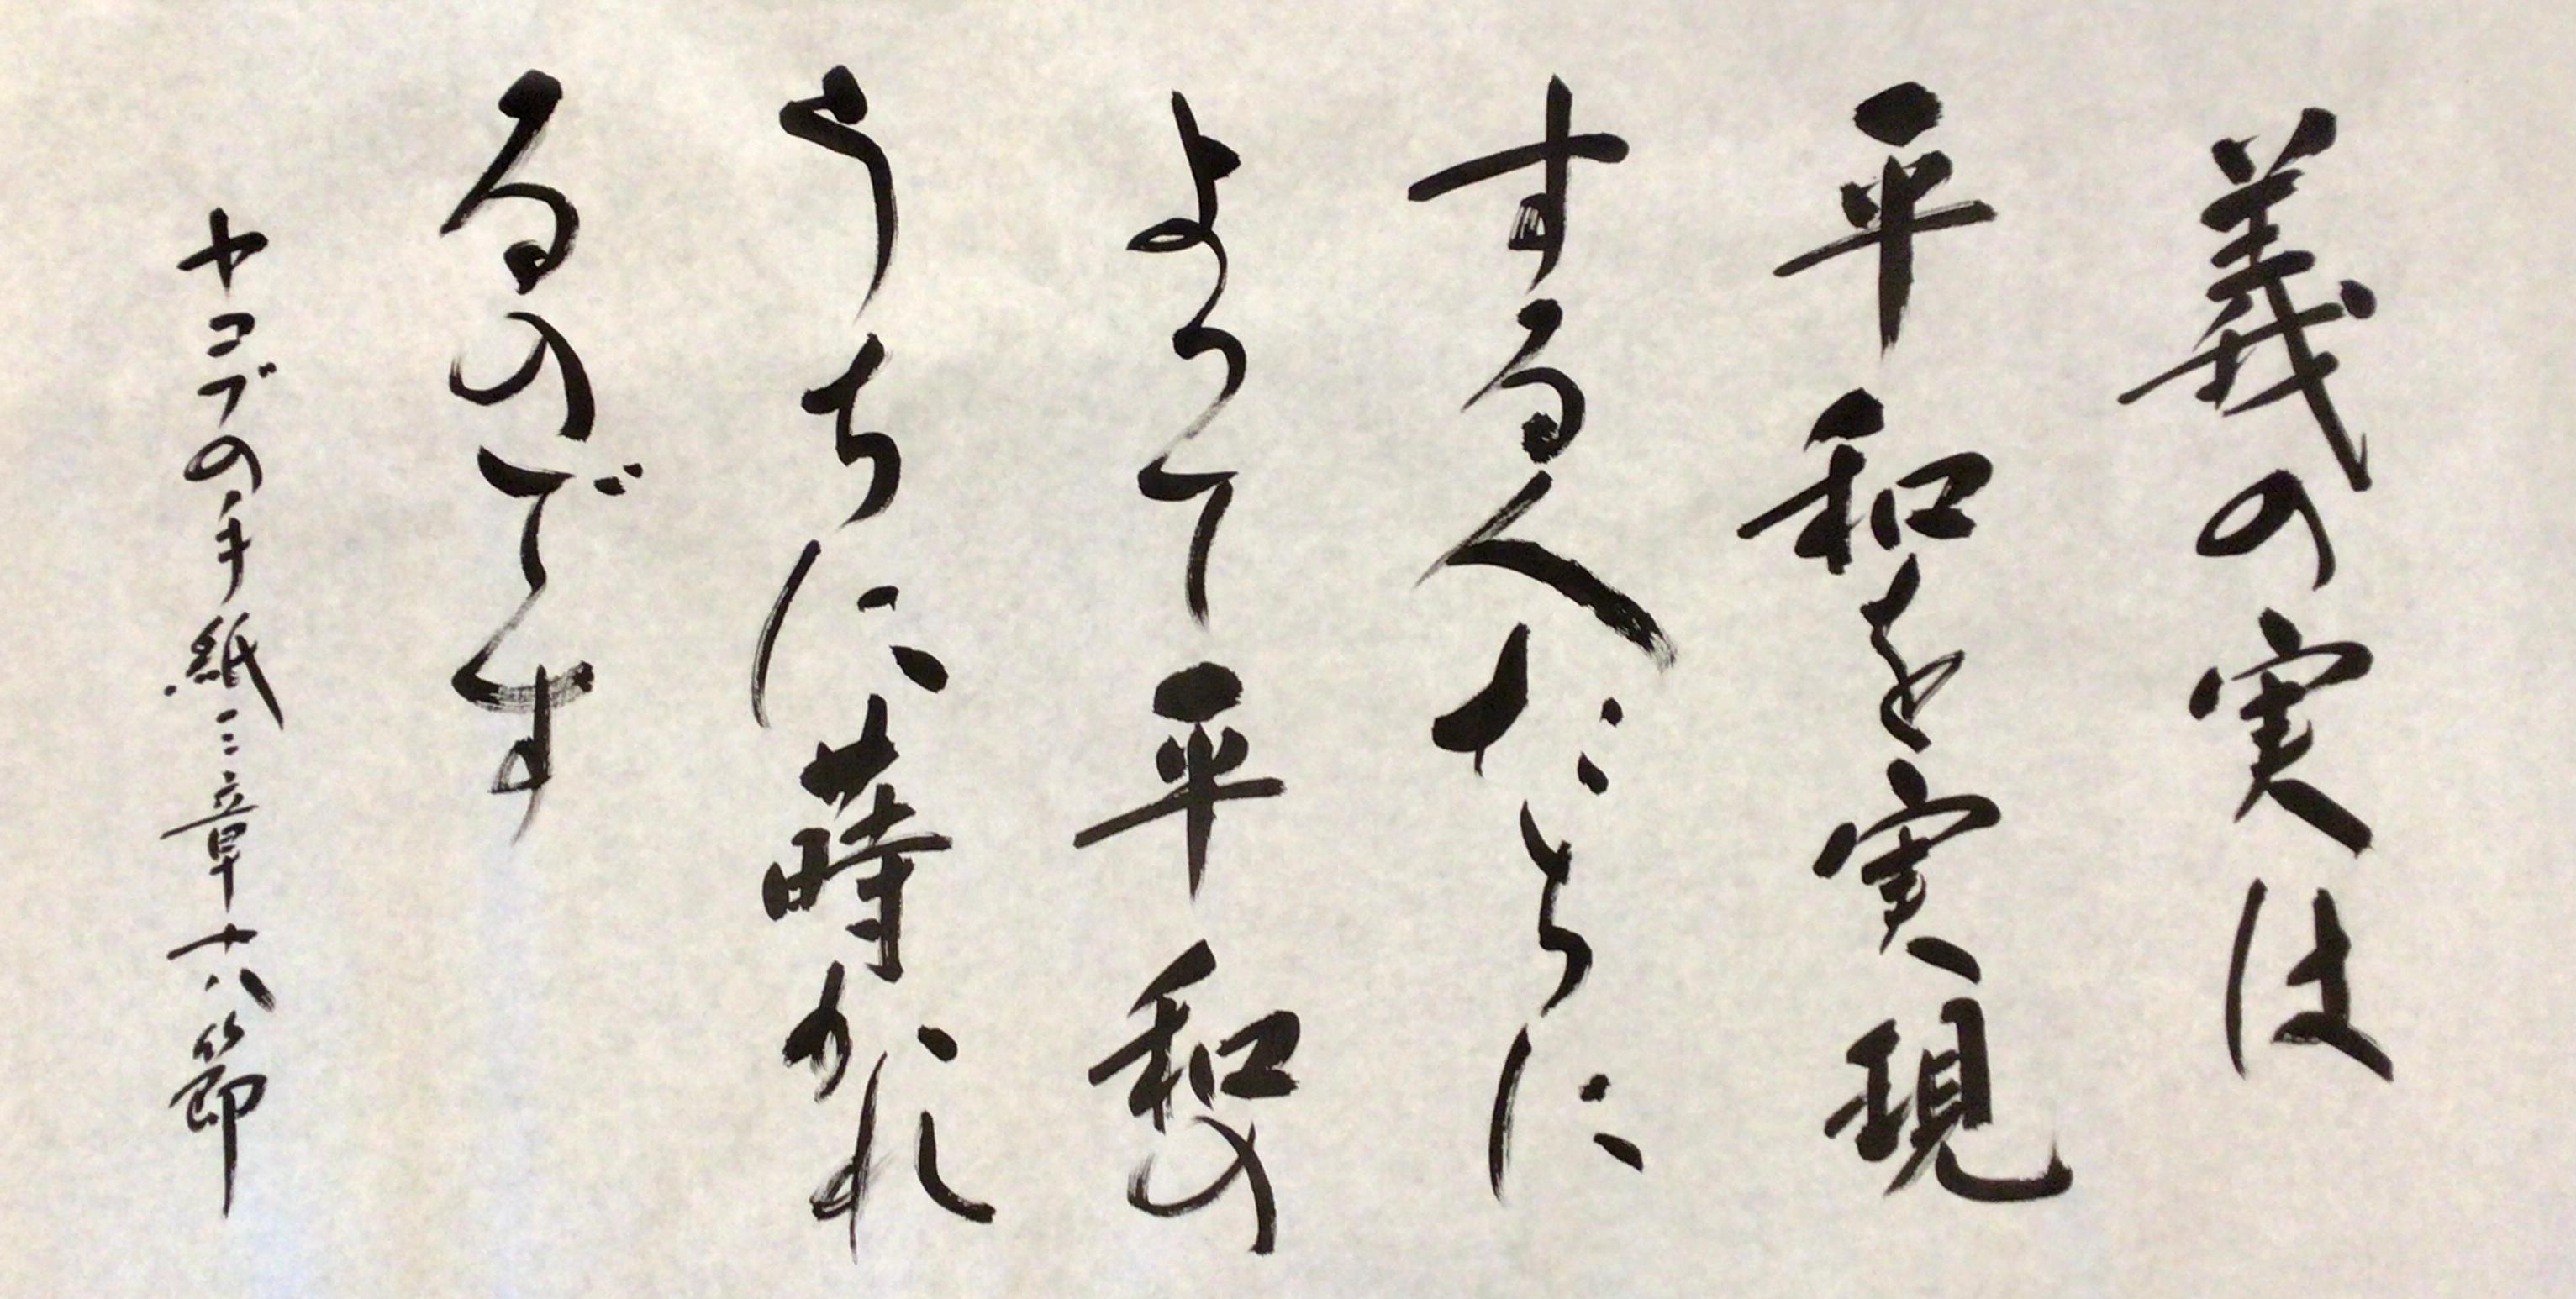 義の実は
平和を実現
する人たちに
よって平和の
うちに蒔かれ
るのです
ヤコブの手紙三章十八節